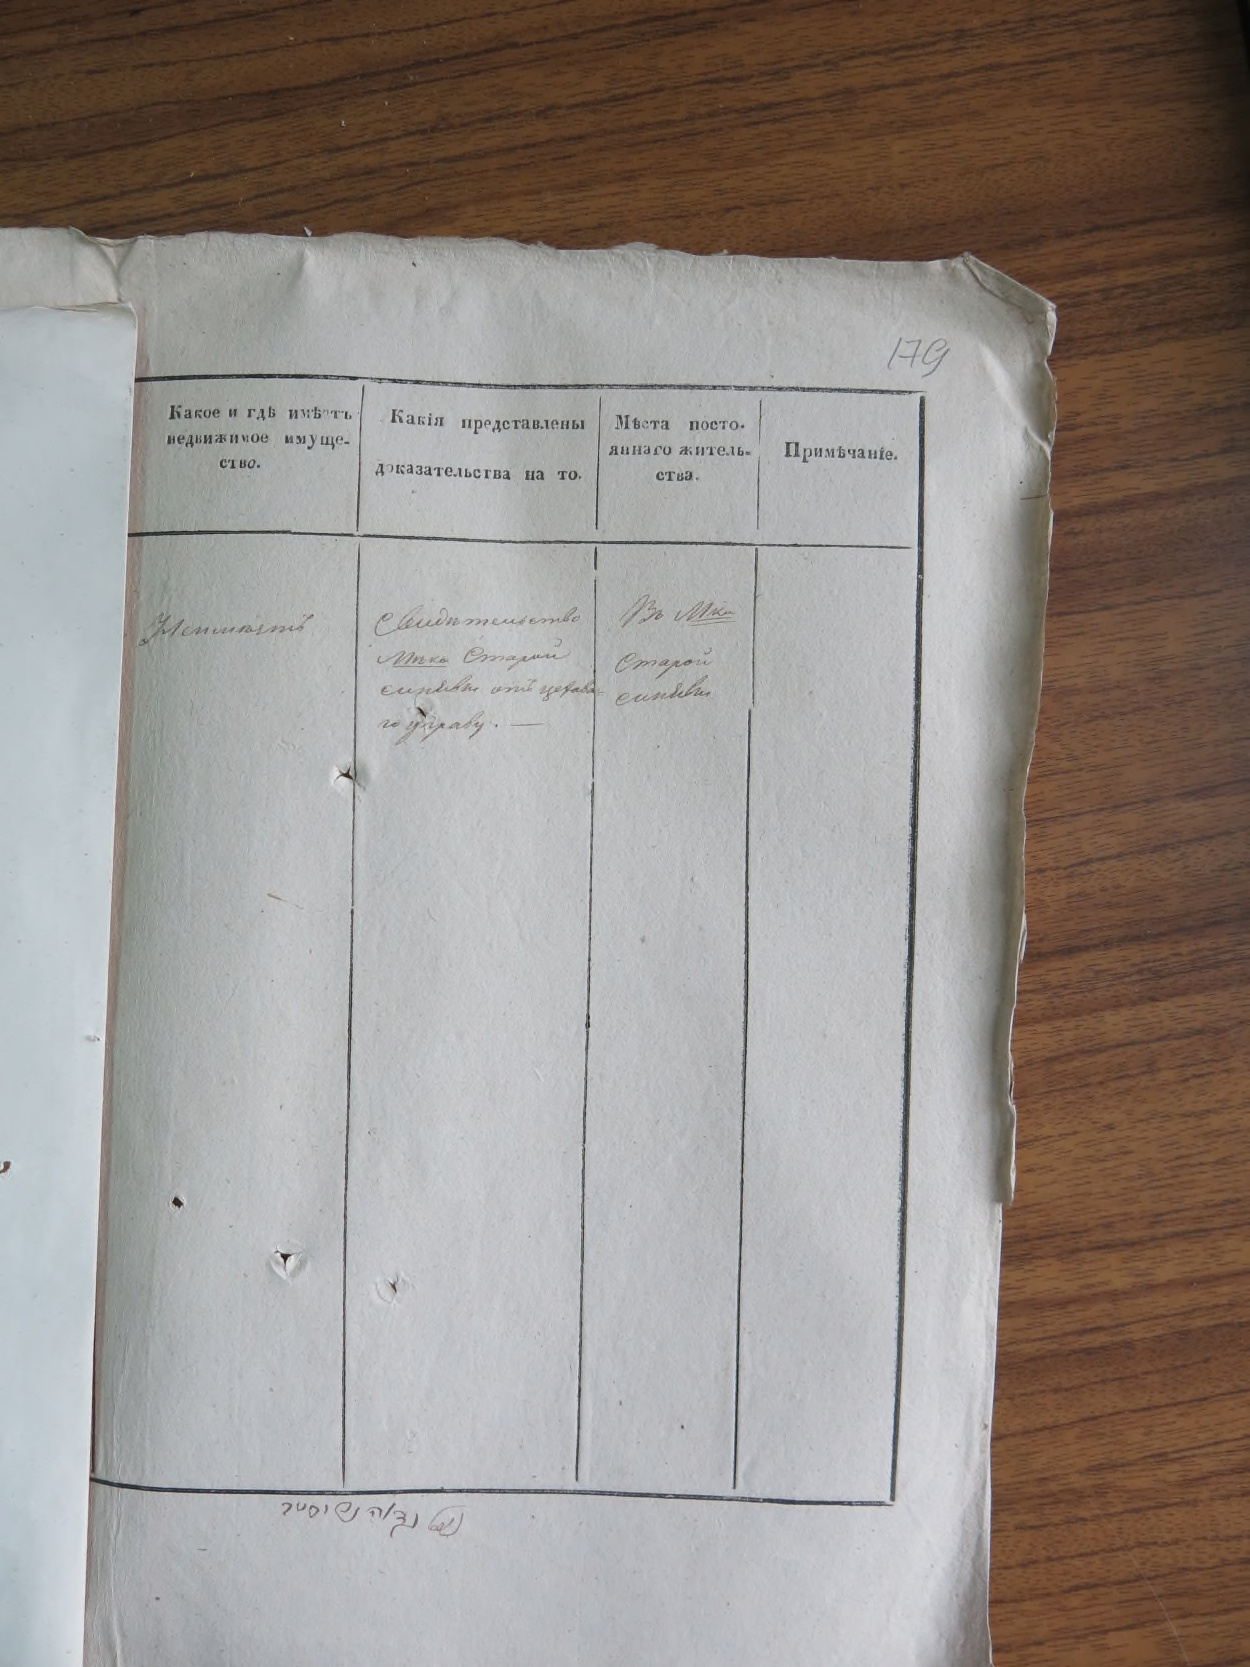 179
Какое и гдѣ имѣетъ
недвижимое имуще-
ство.
Какія представлены
доказательства на то.
Мѣста посто-
яннаго житель-
ства.
Примѣчаніе.
Неимѣетъ
Свидѣтельство
Мѣка Старой
синявы отъ цехова-
го управу. —
Въ Мка
Старой
синявы